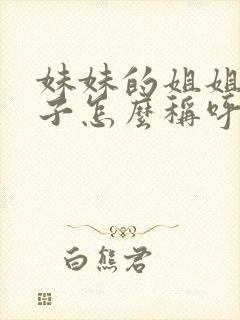 妹妹的姐姐
子怎麼稱呼
白熊君